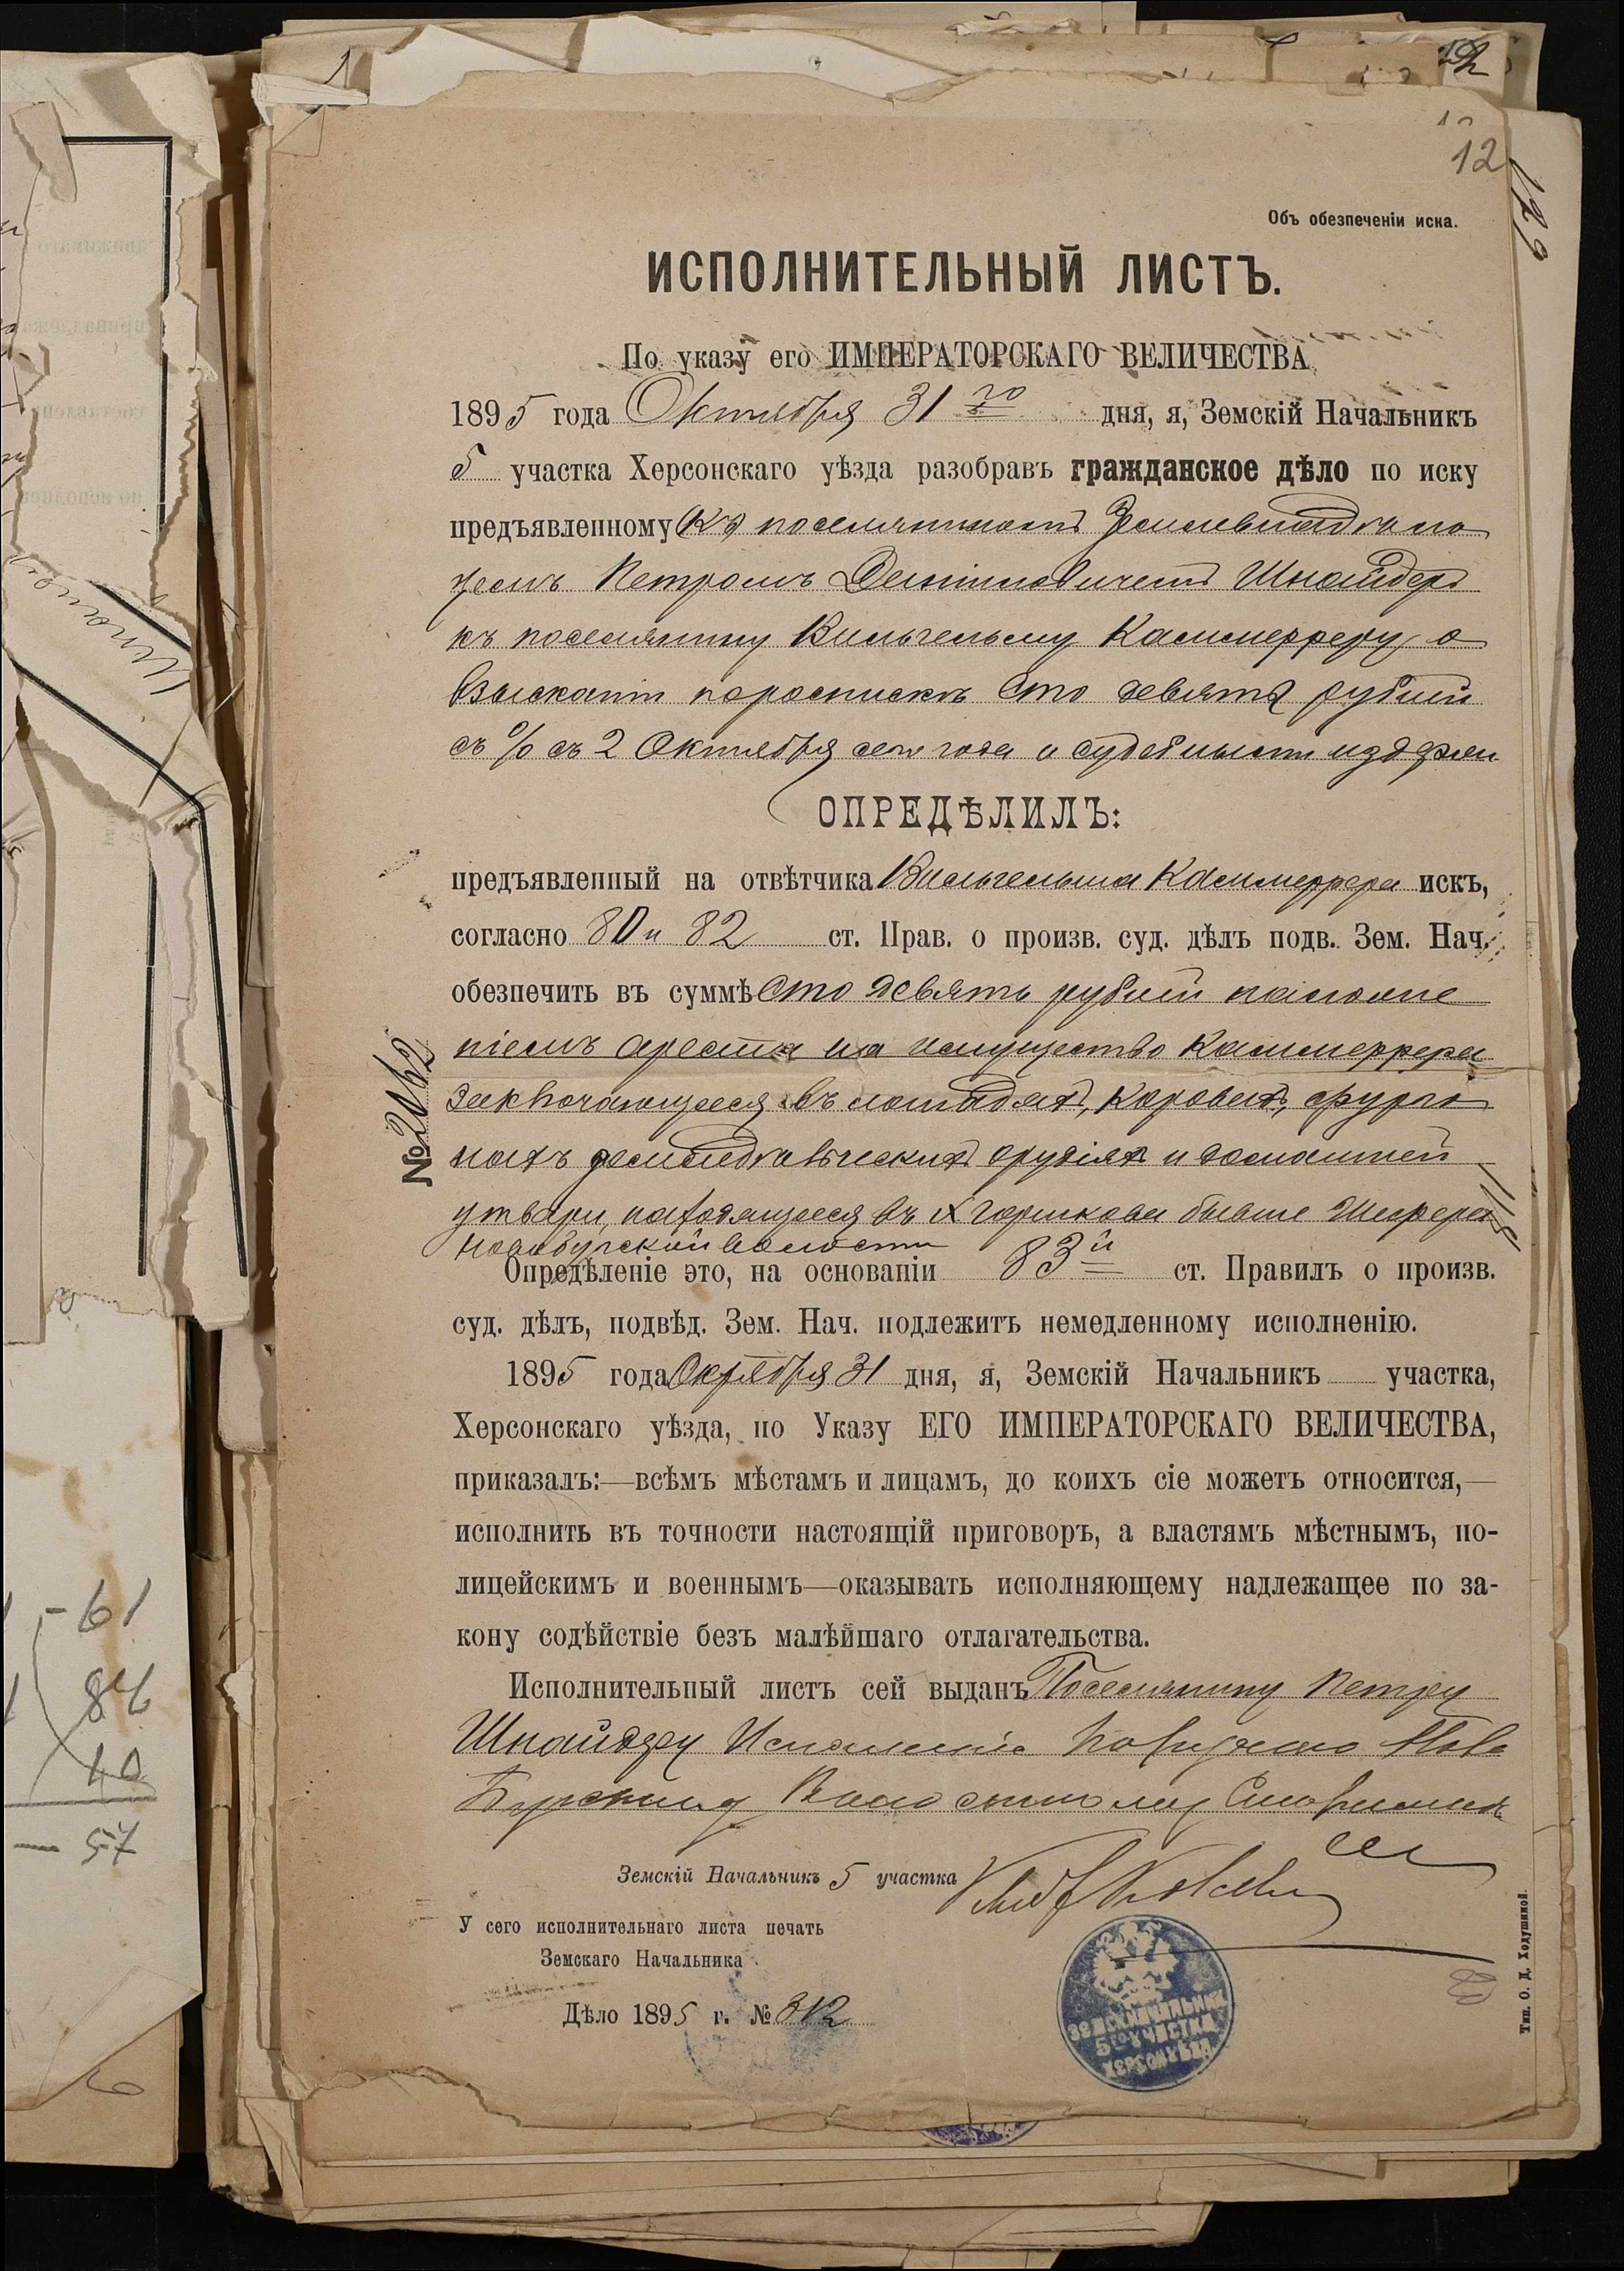 12
129
Объ обезпеченіи иска.
ИСПОЛНИТЕЛЬНЫЙ ЛИСТЪ.
По указу его ИМПЕРАТОРСКАГО ВЕЛИЧЕСТВА
1895 года Октября 31 го дня, я, Земскій Начальникъ
5 участка Херсонскаго уѣзда разобравъ гражданское дѣло по иску
предъявленному поселяниномъ
Петромъ Шнайдеръ
къ поселянину Вильгельму Каммерреру о
взысканіи сто девять рублей
съ % съ 2 Октября сего года и судебныхъ издержекъ
ОПРЕДѢЛИЛЪ:
предъявленный на отвѣтчика Вильгельма Каммеррера искъ,
согласно 80 и 82 ст. Прав. о произв. суд. дѣлъ подв. Зем. Нач.
обезпечить въ суммѣ сто девять рублей наложе
ніемъ ареста на имущество Каммеррера
заключающееся въ лошадяхъ, коровахъ, фурго
нахъ земледѣльческихъ орудіяхъ и домашней
утвари, находящееся въ х Горшкова бывше Шефера
Новобугской волости
Опредѣленіе это, на основаніи 83 й ст. Правилъ о произв.
суд. дѣлъ, подвѣд. Зем. Нач. подлежитъ немедленному исполненію.
1895 года Октября 31 дня, я, Земскій Начальникъ участка,
Херсонскаго уѣзда, по Указу ЕГО ИМПЕРАТОРСКАГО ВЕЛИЧЕСТВА,
приказалъ:—всѣмъ мѣстамъ и лицамъ, до коихъ сіе можетъ относится,—
исполнить въ точности настоящій приговоръ, а властямъ мѣстнымъ, по-
лицейскимъ и военнымъ—оказывать исполняющему надлежащее по за-
кону содѣйствіе безъ малѣйшаго отлагательства.
Исполнительный листъ сей выданъ Поселянину Петру
Шнайдеру Исполненіе поручено Ново
Бугскому Волостному Старшинѣ
Земскій Начальникъ 5 участка
У сего исполнительнаго листа печать
Земскаго Начальника
Дѣло 1895 г. № 312
ЗЕМСК. НАЧАЛЬНИК
5го УЧАСТКА
ХЕРСОН. УѢЗДА
Тип. О. Д. Ходушиной.
№ 2062
61
84
40
57